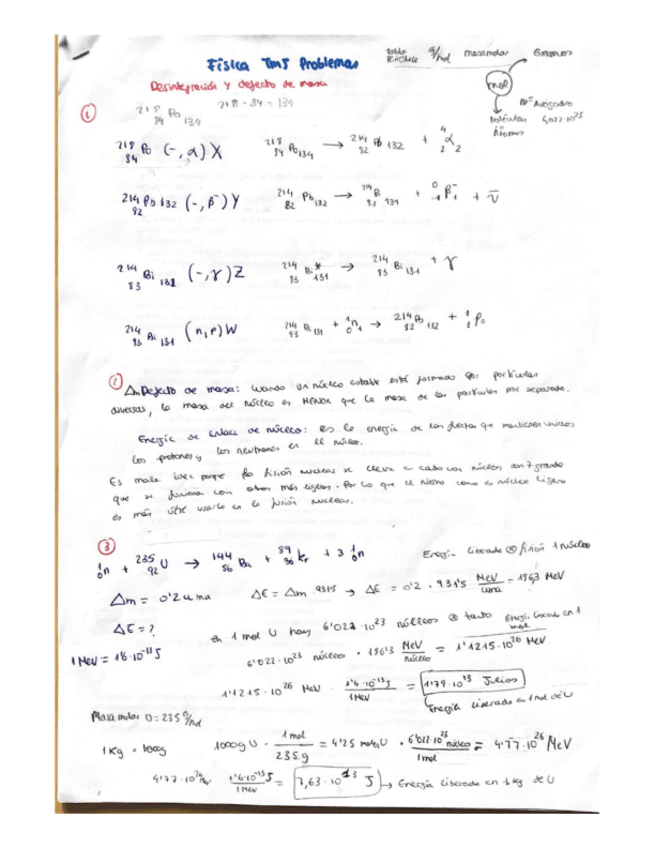 Física Tm5 Problemas
tabla periódica g/mol masamolar Gramos
mol
Nº Avogadro
Moléculas 6,022·10^23
Átomos
Desintegración y defecto de masa
① 218 84 Po 134 218 - 84 = 134
218 84 Po (-, α) X 218 84 Po 134 → 214 82 Pb 132 + 4 2 α 2
214 82 Pb 132 (-, β⁻) Y 214 82 Pb 132 → 214 83 Bi 131 + 0 -1 β⁻ + ν̄
214 83 Bi 131 (-, γ) Z 214 83 Bi* 131 → 214 83 Bi 131 + γ
214 83 Bi 131 (n, p) W 214 83 Bi 131 + 1 0 n 1 → 214 82 Pb 132 + 1 1 p 0
② Δm Defecto de masa: cuando un núcleo estable está formado por partículas
diversas, la masa del núcleo es MENOR que la masa de las partículas por separado.
Energía de enlace de núcleo: es la energía de las fuerzas que mantienen unidos
los protones y los neutrones en el núcleo.
Es mala idea porque la fisión nuclear se lleva a cabo con núcleos grande
que se fusionan con otros más ligeros. Por lo que el como es núcleo ligero
es más útil usarlo en la fusión nuclear.
③
1 0 n + 235 92 U → 144 56 Ba + 89 36 Kr + 3 1 0 n Energía liberada fisión 1 núcleo
Δm = 0'2 uma ΔE = Δm · 931'5 → ΔE = 0'2 · 931'5 MeV/uma = 186,3 MeV
ΔE = ?
en 1 mol U hay 6'022·10^23 núcleos tanto Energía liberada en 1 mol
1 MeV = 1'6·10^-13 J
6'022·10^23 núcleos · 186'3 MeV/núcleo = 1'1215·10^26 MeV
1'1215·10^26 MeV · 1'6·10^-13 J / 1 MeV = 1'79·10^13 Julios
Energía liberada en 1 mol de U
Masa molar U = 235 g/mol
1 Kg = 1000g 1000g U · 1 mol / 235 g = 4'25 moles U · 6'022·10^23 núcleos / 1 mol = 4'77·10^26 MeV
4'77·10^26 MeV 1'6·10^-13 J / 1 MeV = 7,63·10^13 J → Energía liberada en 1 kg de U